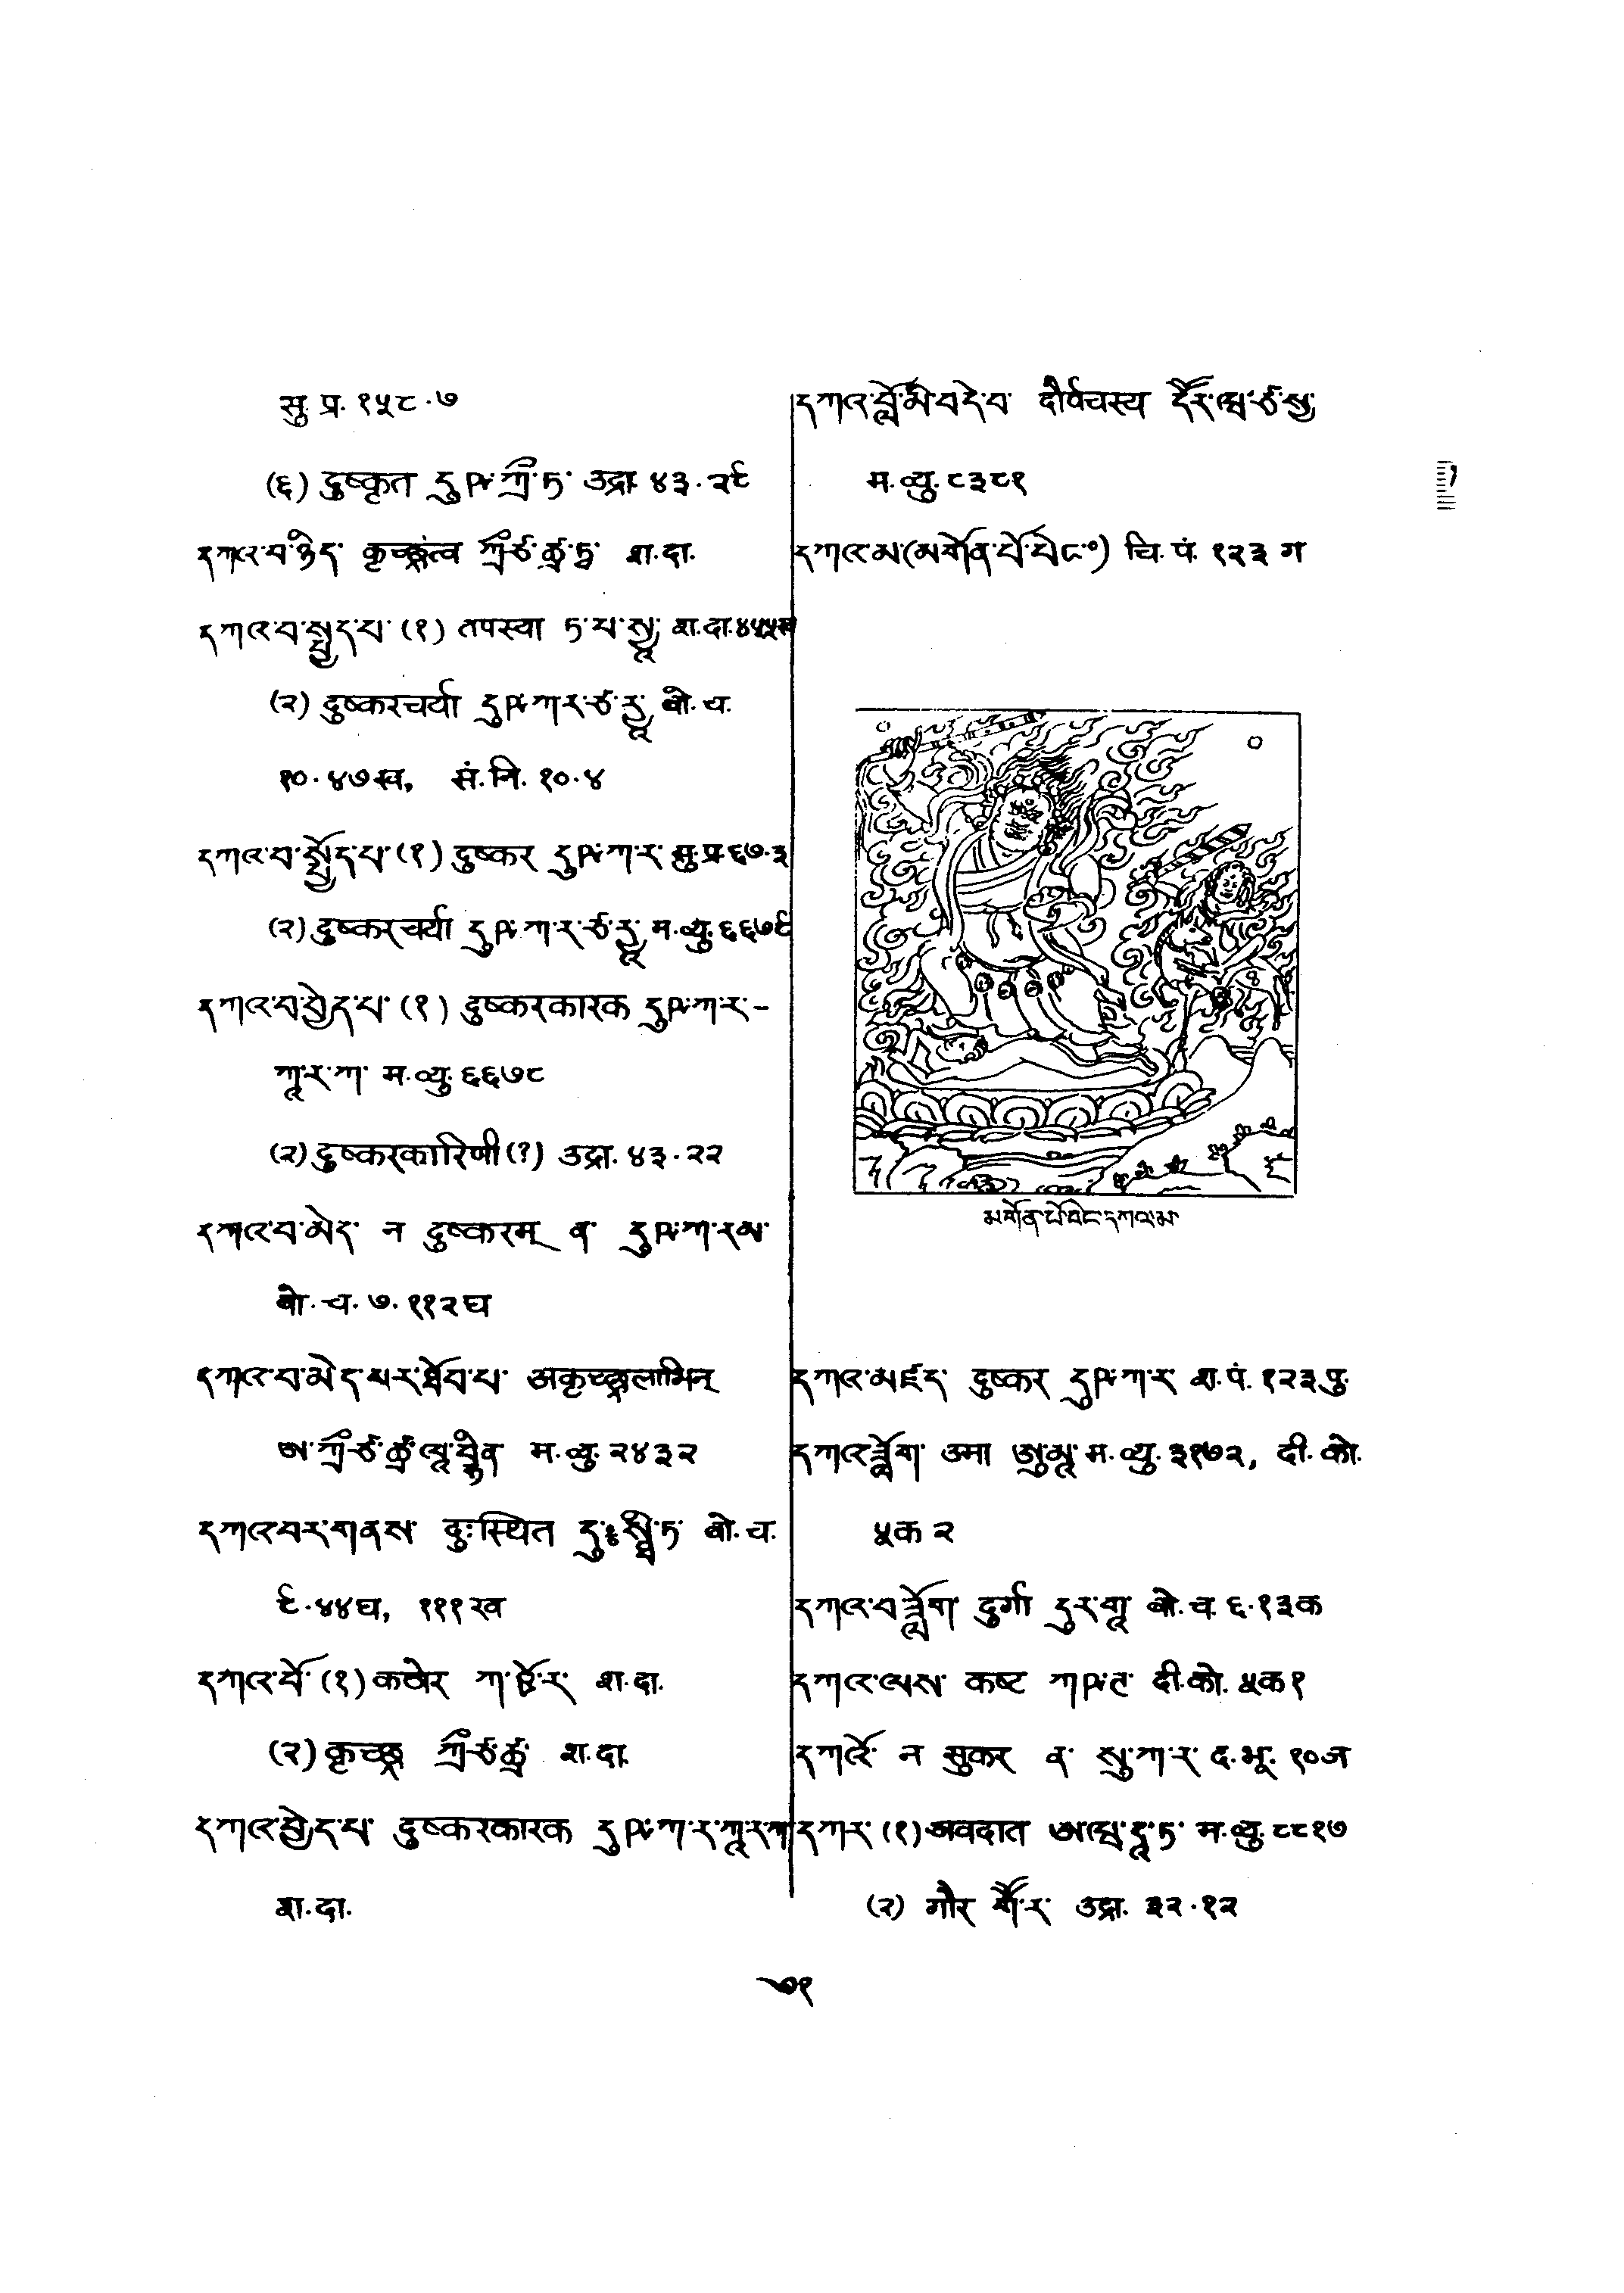 सु. प्र. १५८.७
(६) दुष्कृत དུཥ་ཀྲྀ་ཏ་ उद्रा. ४३.२९
དཀའ་བ་ཉིད་ कृच्छ्रत्व ཀྲྀཙ་ཚྲ་ཏྭ་ श. दा.
དཀའ་བ་སྤྱད་པ་ (१) तपस्या ཏ་པ་སྱཱ་ श. दा. ४५५ख
(२) दुष्करचर्या དུཥ་ཀ་ར་ཙ་རྱཱ་ बो. च.
१०.४७ख, सं. नि. १०.४
དཀའ་བ་སྤྱོད་པ་ (१) दुष्कर དུཥ་ཀ་ར་ सु. प्र. ६७.३
(२) दुष्करचर्या དུཥ་ཀ་ར་ཙ་རྱཱ་ म. व्यु. ६६७९
དཀའ་བ་བྱེད་པ་ (१) दुष्करकारक དུཥ་ཀ་ར་-
ཀཱ་ར་ཀ་ म. व्यु. ६६७८
(२) दुष्करकारिणी (?) उद्रा. ४३.२२
དཀའ་བ་མེད་ न दुष्करम् ན་ དུཥ་ཀ་རམ་
बो. च. ७.११२घ
དཀའ་བ་མེད་པར་ཐོབ་པ་ अकृच्छ्रलाभिन्
ཨ་ཀྲྀཙ་ཚྲ་ལཱ་བྷིན་ म. व्यु. २४३२
དཀའ་བར་གནས་ दुःस्थित དུཿསྠི་ཏ་ बो. च.
९.४४घ, १११ख
དཀའ་བོ་ (१) कठोर ཀ་ཋོ་ར་ श. दा.
(२) कृच्छ्र ཀྲྀཙ་ཚྲ་ श. दा.
དཀའ་བྱེད་པ་ दुष्करकारक དུཥ་ཀ་ར་ཀཱ་ར་ཀ་
श. दा.
དཀའ་བློ་མི་བདེ་བ་ दीर्षचस्य དཽར་ཝ་ཙ་སྱ་
म. व्यु. ८३८१
དཀའ་མ་(མགོན་པོ་བེང་॰) चि. पं. १२३ ग
མགོན་པོ་བེང་དཀའ་མ་
དཀའ་མཛད་ दुष्कर དུཥ་ཀ་ར་ श. पं. १२३ पु.
དཀའ་ཟློག་ उमा ཨུ་མཱ་ म. व्यु. ३१७२, दी. को.
५क २
དཀའ་བཟློག་ दुर्गा དུར་གཱ་ बो. च. ६.१३क
དཀའ་ལས་ कष्ट ཀཥ་ཊ་ दी. को. ५क१
དཀའོ་ न सुकर ན་ སུ་ཀ་ར་ द. भू. १०ज
དཀར་ (१) अवदात ཨ་ཝ་དཱ་ཏ་ म. व्यु. ८८१७
(२) गौर གཽ་ར་ उद्रा. ३२.१२
७१